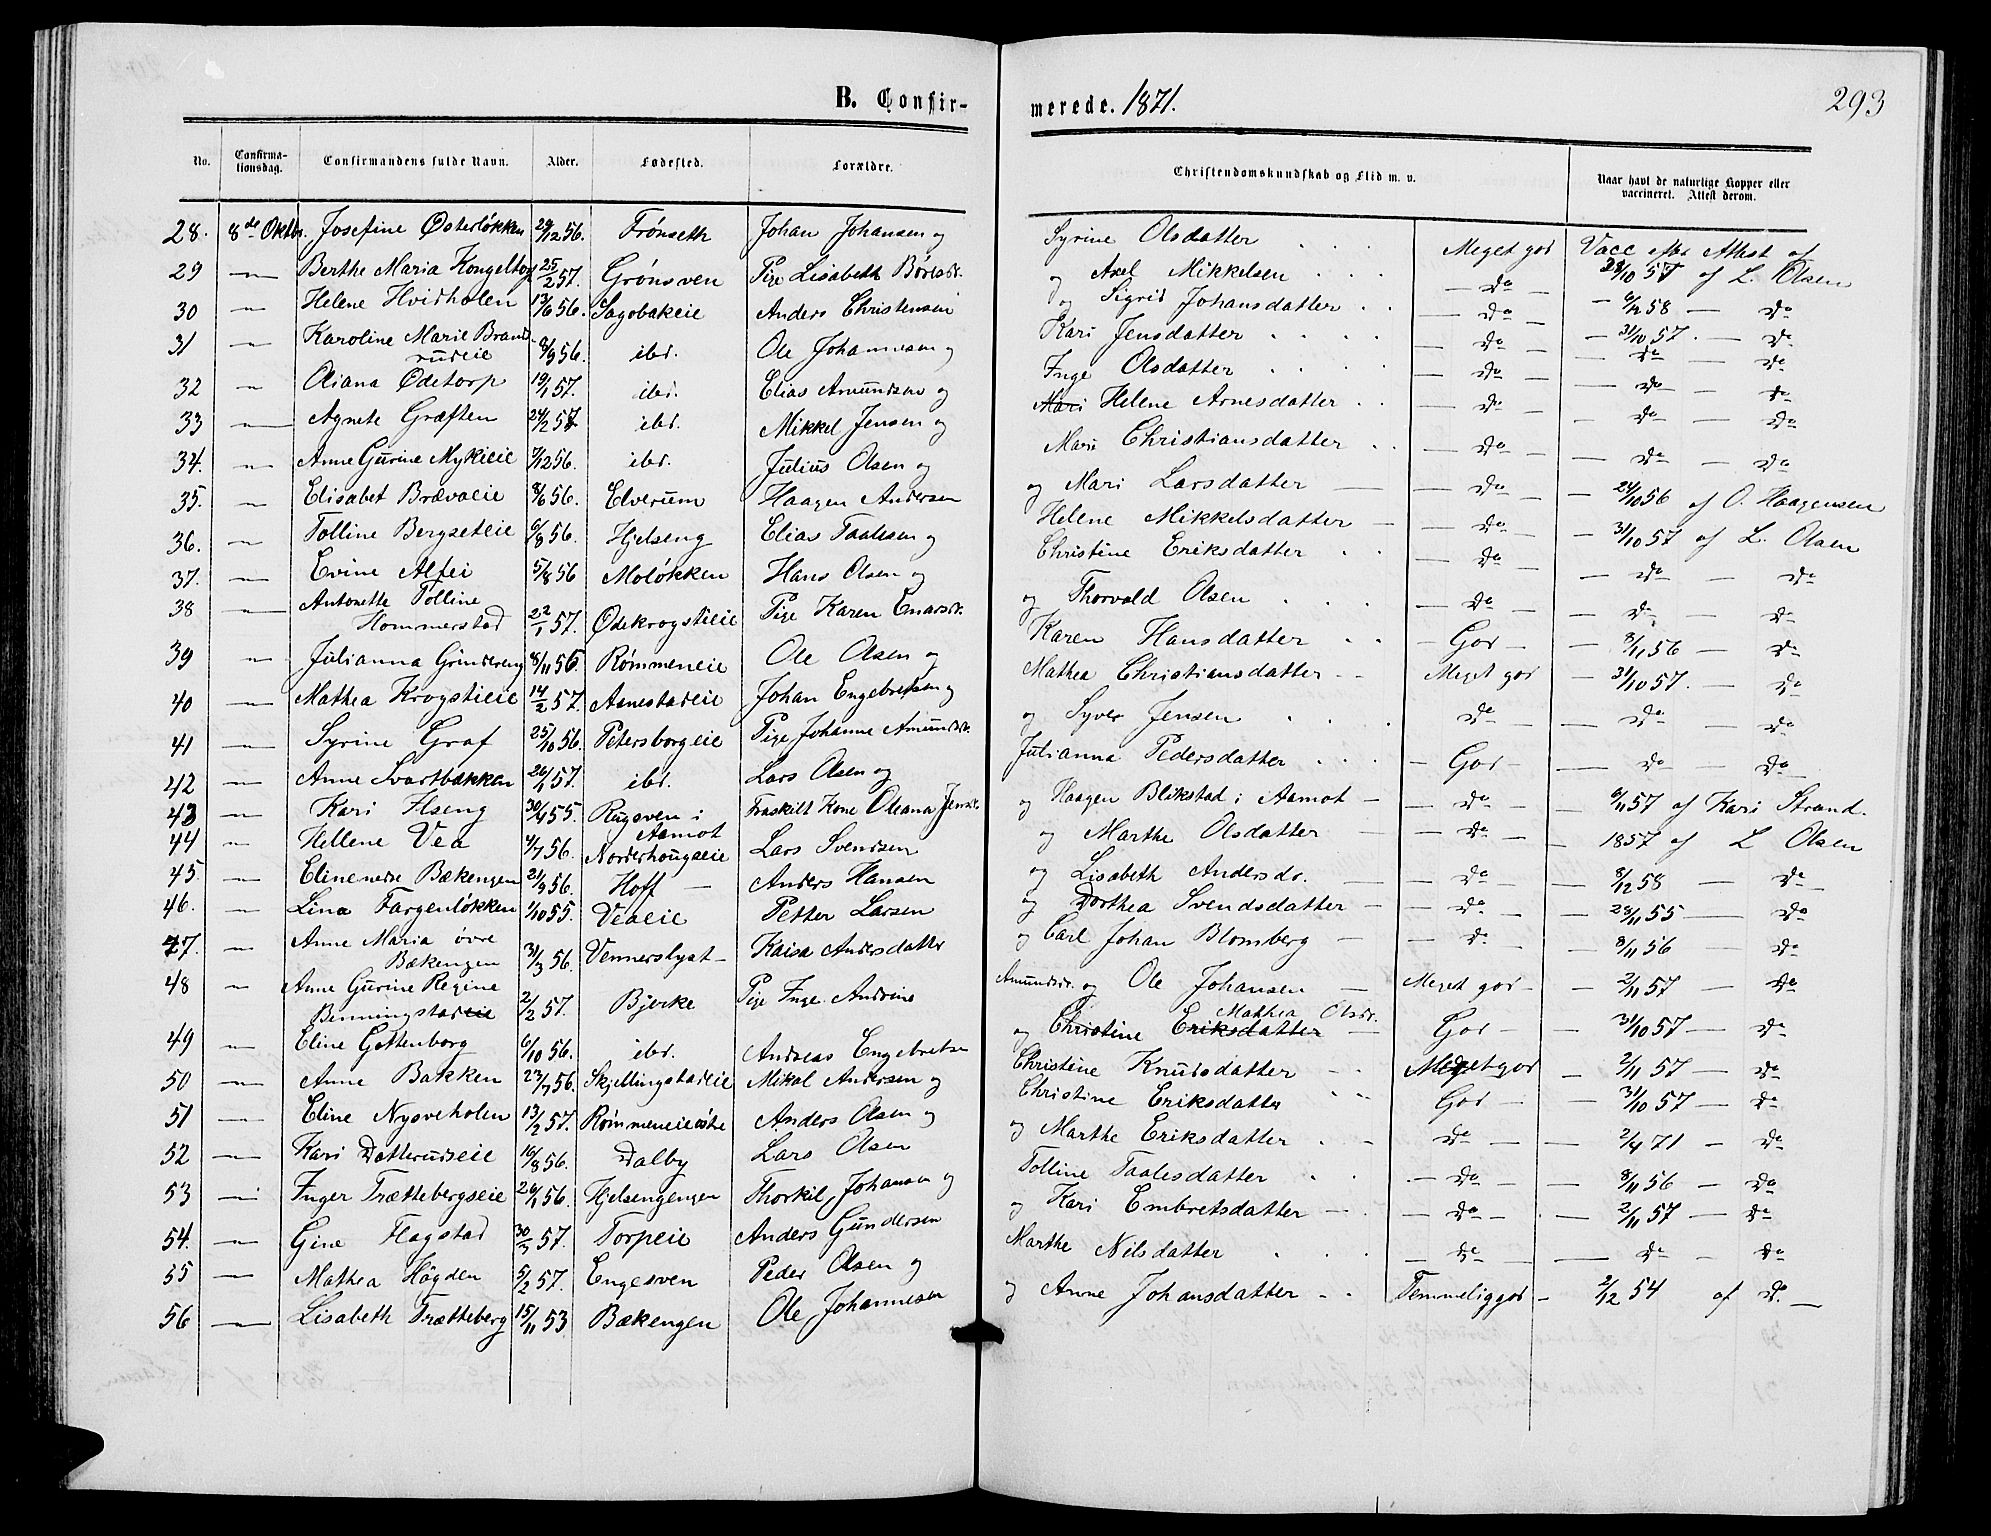 B. Confir-
merede. 1871.
293
No.
Confirma-
tionsdag.
Confirmandens fulde Navn.
Alder.
Fødested.
Forældre.
Christendomskundskab og Flid m. v.
Naar havt de naturlige Kopper eller
vaccineret. Attest derom.
28. 8de Oktbr. Josefine Østerløkken 29/12 56. Frønseth Johan Johansen og Syrine Olsdatter Meget god Vacc Attest af
29 — Berthe Maria Kongeltorp 25/2 57. Grønsven Pige Lisabeth Børesdr. og Axel Mikkelsen — Do — 28/10 57 af L. Olsen
30 — Helene Hvidholen 13/6 56. Sagobakeie Anders Christensen og Sigrid Johansdatter — Do — 58 — Do
31 — Karoline Marie Brand-
rudeie 8/9 56. ibd. Ole Johannesen og Kari Jensdatter — Do — 31/10 57. — Do
32 — Oliana Ødetorp 19/1 57. ibd. Elias Amundsen og Inge Olsdatter — Do — Do — Do
33 — Agnete Græften 24/2 57 ibd. Mikkel Jensen og Mari Helene Arnesdatter — Do — Do — Do
34. — Anne Gurine Mykleie /12 56. ibd. Julius Olsen og Mari Christiansdatter — Do — Do — Do
35. — Elisabet Brævaeie 8/6 56. Elverum Haagen Andersen og Mari Larsdatter — Do — 24/10 56 af O. Haagensen
36. — Tolline Bergseteie 6/8 56. Hjelseng Elias Taalesen og Helene Mikkelsdatter — Do — 31/10 57 af L. Olsen
37. — Evine Alfei 5/8 56 Moløkken Hans Olsen og Christine Eriksdatter — Do — Do — Do
38 — Antonette Tolline
Hommerstad 22/1 57. Ødekrogstieie Pige Karen Enarsdr. og Thorvald Olsen — Do — Do — Do
39 — Julianna Grindereng 8/11 56 Rømmeneie Ole Olsen og Karen Hansdatter — God — 8/11 56 — Do
40 — Mathea Krogstieie 14/2 57. Arnestadeie Johan Engebretsen og Mathea Christiansdatter Meget god — 31/10 57. — Do
41 — Syrine Graf 25/10 56. Petersborgeie Pige Johanne Amundsdr. og Syver Jensen Do — Do — Do
42 — Anne Svartbækken 26/1 57. ibd. Lars Olsen og Julianna Pedersdatter — God — Do — Do
43 — Kari Ilseng 30/4 55. Rugsven i
Aamot Fraskilt Kone Oleana Jensdr. og Haagen Blikstad i Aamot — Do — 6/11 57 af Kari Strand.
44 — Hellene Vea 4/7 56. Norderhougseie Lars Svendsen og Marthe Olsdatter — Do — 1857 af L Olsen
45. — Elinenedre Bækengen 21/9 56. Hoff — Anders Hansen og Lisabeth Andersdr. — Do — 8/12 58 — Do
46. — Lina Fargenløkken 1/10 55. Veaeie Petter Larsen og Dorthea Svendsdatter — Do — 28/11 55 — Do
47. — Anne Maria øvre
Bækengen 31/3 56. Vennerslyst — Kaisa Andersdatter og Carl Johan Blomberg — Do — 8/11 56 — Do
48 — Anne Gurine Regine
Benningstadeie 2/2 57. Bjerke Pige Inge Andrine Amundsdr. og Ole Johansen — Meget god — 2/11 57 — Do
Mathea Olsdr.
49 — Eline Gottenborg 6/10 56. ibd. Andreas Engebretse og Christine Eriksdatter — God — 31/10 57 — Do
50 — Anne Bakken 23/7 56. Skjellingstadeie Mikal Andersen og Christine Knudsdatter — Meget god — 2/11 57 — Do
51 — Eline Nysveholen 13/2 57. Rømmeneieøstre Anders Olsen og Christine Eriksdatter God — 31/10 57 — Do
52 — Kari Dotterudseie 16/8 56. Dalby Lars Olsen og Marthe Eriksdatter — Do — 2/4 71 — Do
53 — Inger Trættebergseie 26/1 56. Hjelsengengen Thorkil Johansen og Tolline Taalesdatter — Do — 8/11 56 — Do
54. — Gine Flagstad 30/3 57. Torpeie Anders Gundersen og Kari Embretsdatter — Do — 2/11 57 — Do
55 — Mathea Høgden 5/2 57. Engesven Peder Olsen og Marthe Nilsdatter — Do — Do — Do
56 — Lisabeth Trætteberg 15/11 53 Bækengen Ole Johannesen og Anne Johansdatter Temmelig god — 2/12 54 af Do. —